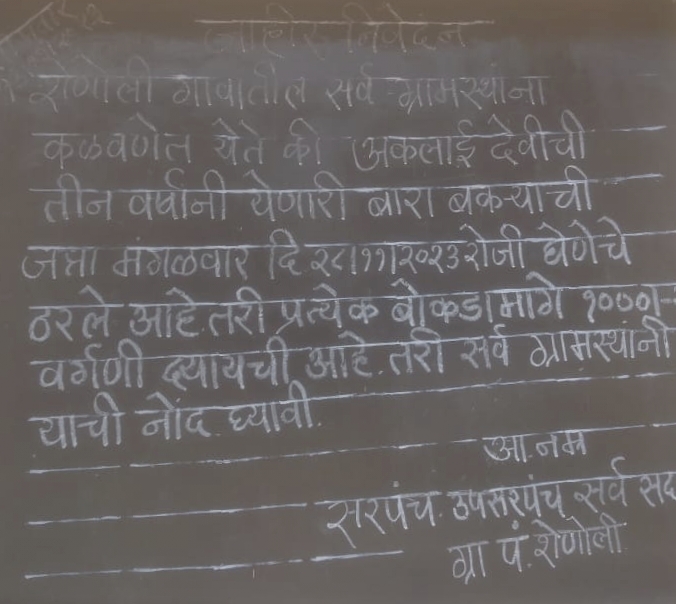 जाहीर निवेदन
शेणोली गावातील सर्व ग्रामस्थांना
कळवणेत येते की अकलाई देवीची
तीन वर्षांनी येणारी बारा बकऱ्याची
जत्रा मंगळवार दि २८।११।२०२३ रोजी घेणेचे
ठरले आहे. तरी प्रत्येक बोकडा मागे १०००।-
वर्गणी द्यायची आहे. तरी सर्व ग्रामस्थांनी
याची नोंद घ्यावी.
आ. नम्र
सरपंच. उपसरपंच, सर्व सद
ग्रा पं. शेणोली.